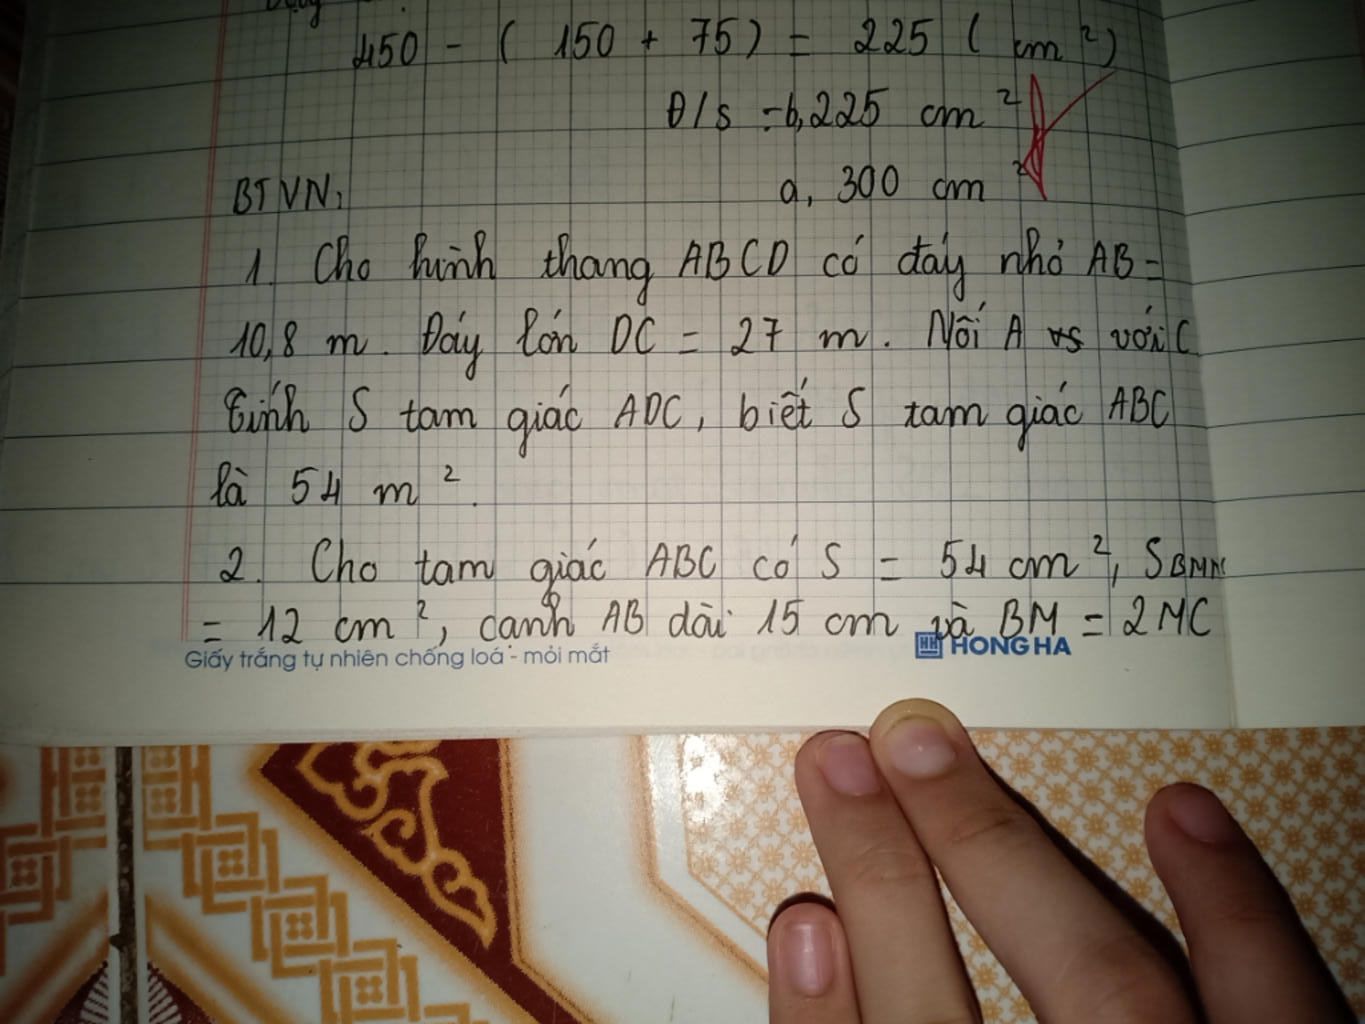 450 - ( 150 + 75 ) = 225 ( cm ² )
Đ/s : b, 225 cm ²
a, 300 cm ²
BTVN:
1. Cho hình thang ABCD có đáy nhỏ AB =
10,8 m. Đáy lớn DC = 27 m. Nối A với C
Tính S tam giác ADC, biết S tam giác ABC
là 54 m ².
2. Cho tam giác ABC có S = 54 cm ², SBMN
= 12 cm ², cạnh AB dài 15 cm và BM = 2 MC
Giấy trắng tự nhiên chống loá - mỏi mắt
HH HONG HA